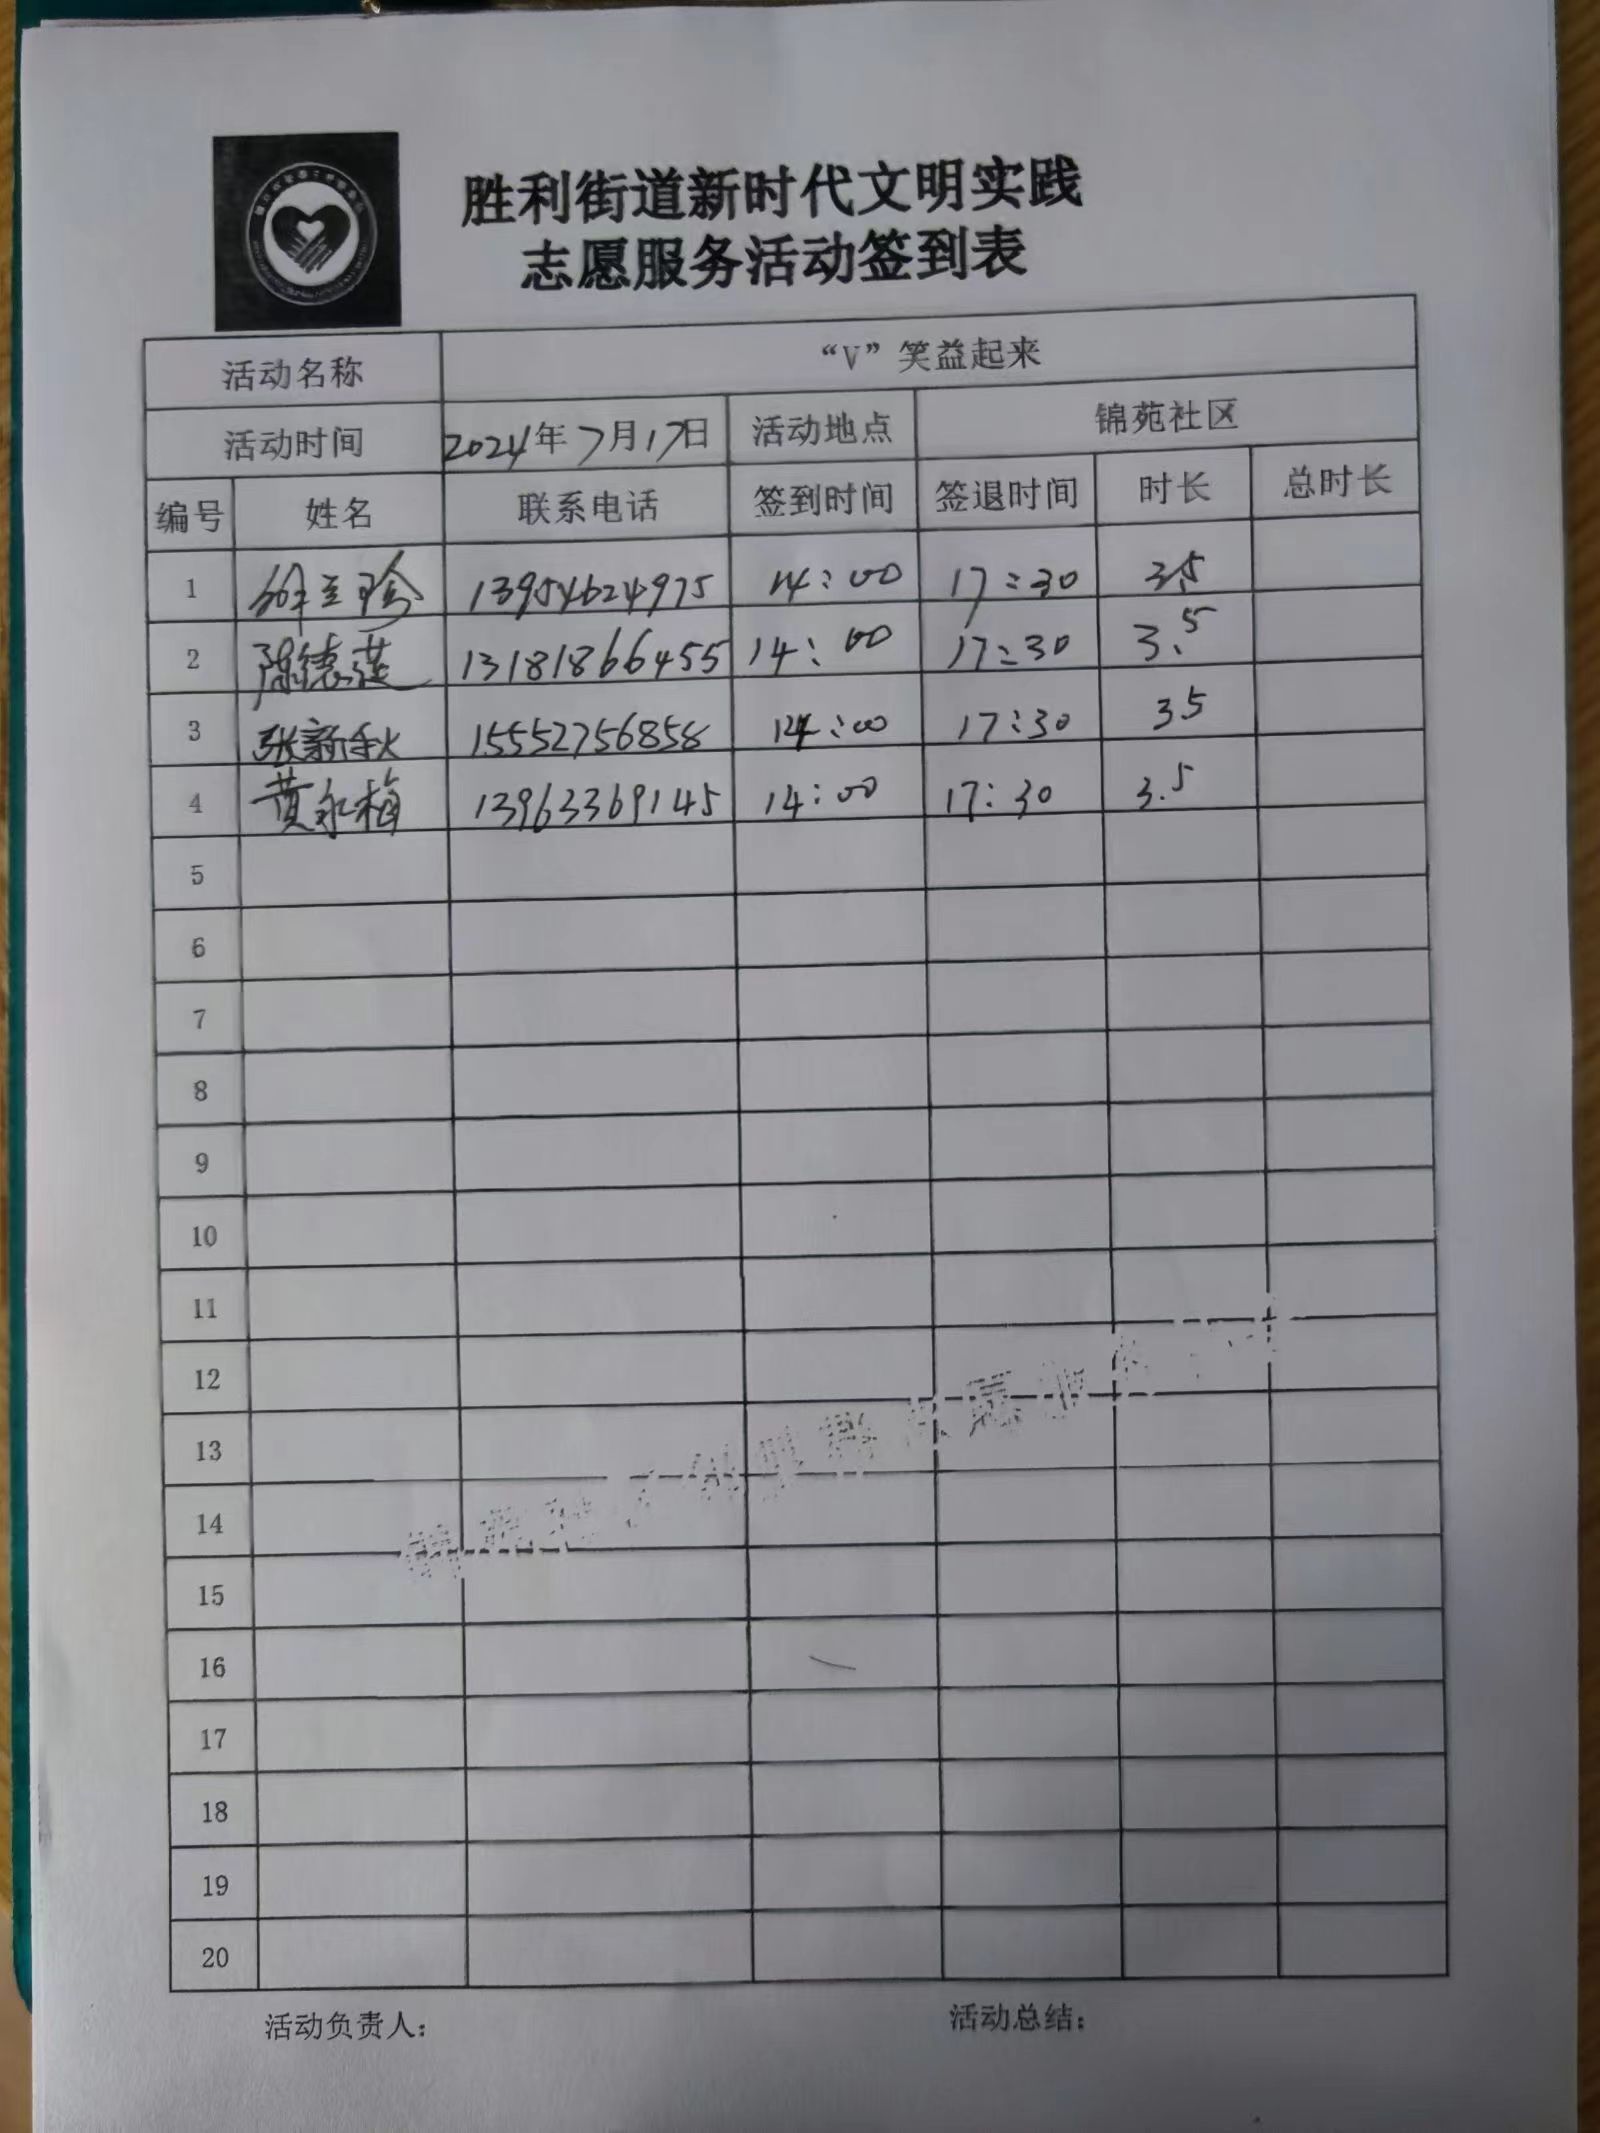 胜利街道新时代文明实践
志愿服务活动签到表
活动名称 “V”笑益起来
活动时间 2024年7月17日 活动地点 锦苑社区
编号 姓名 联系电话 签到时间 签退时间 时长 总时长
1 13954624975 14:00 17:30 3.5
2 陈德莲 13181866455 14:00 17:30 3.5
3 张新秋 15552756858 14:00 17:30 35
4 黄永梅 13963369145 14:00 17:30 3.5
5
6
7
8
9
10
11
12
13
14
15
16
17
18
19
20
活动负责人: 活动总结: